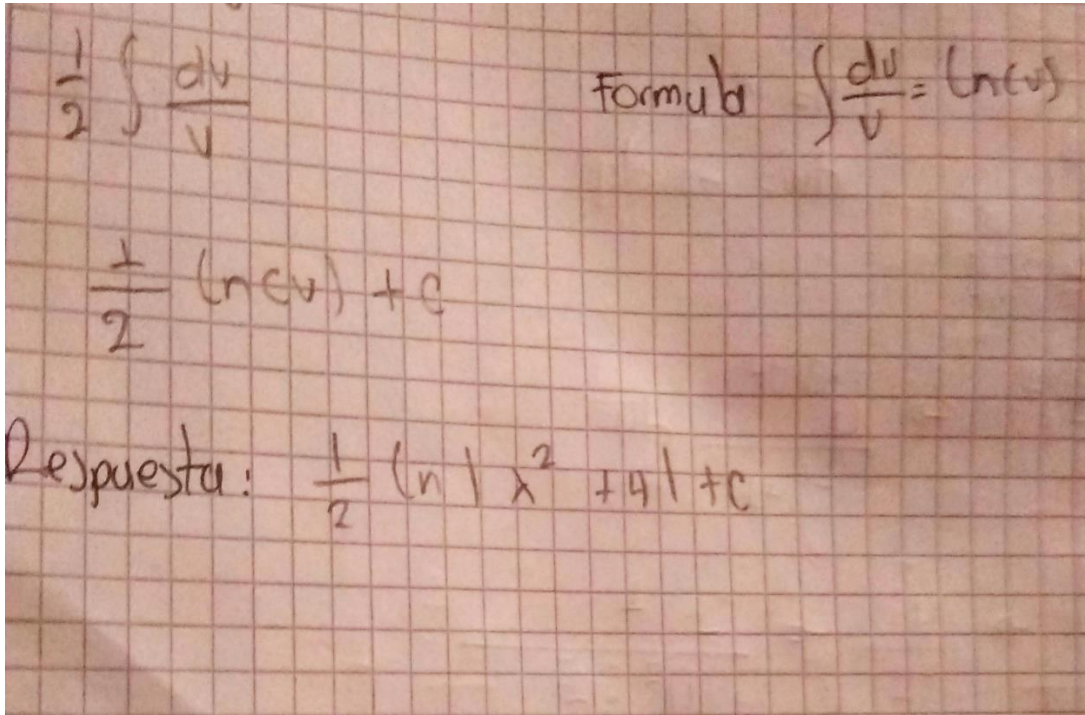 1/2 ∫ dv/v Formula ∫ dv/v = ln(v)
1/2 ln(v) + c
Respuesta: 1/2 ln|x² + 4| + c